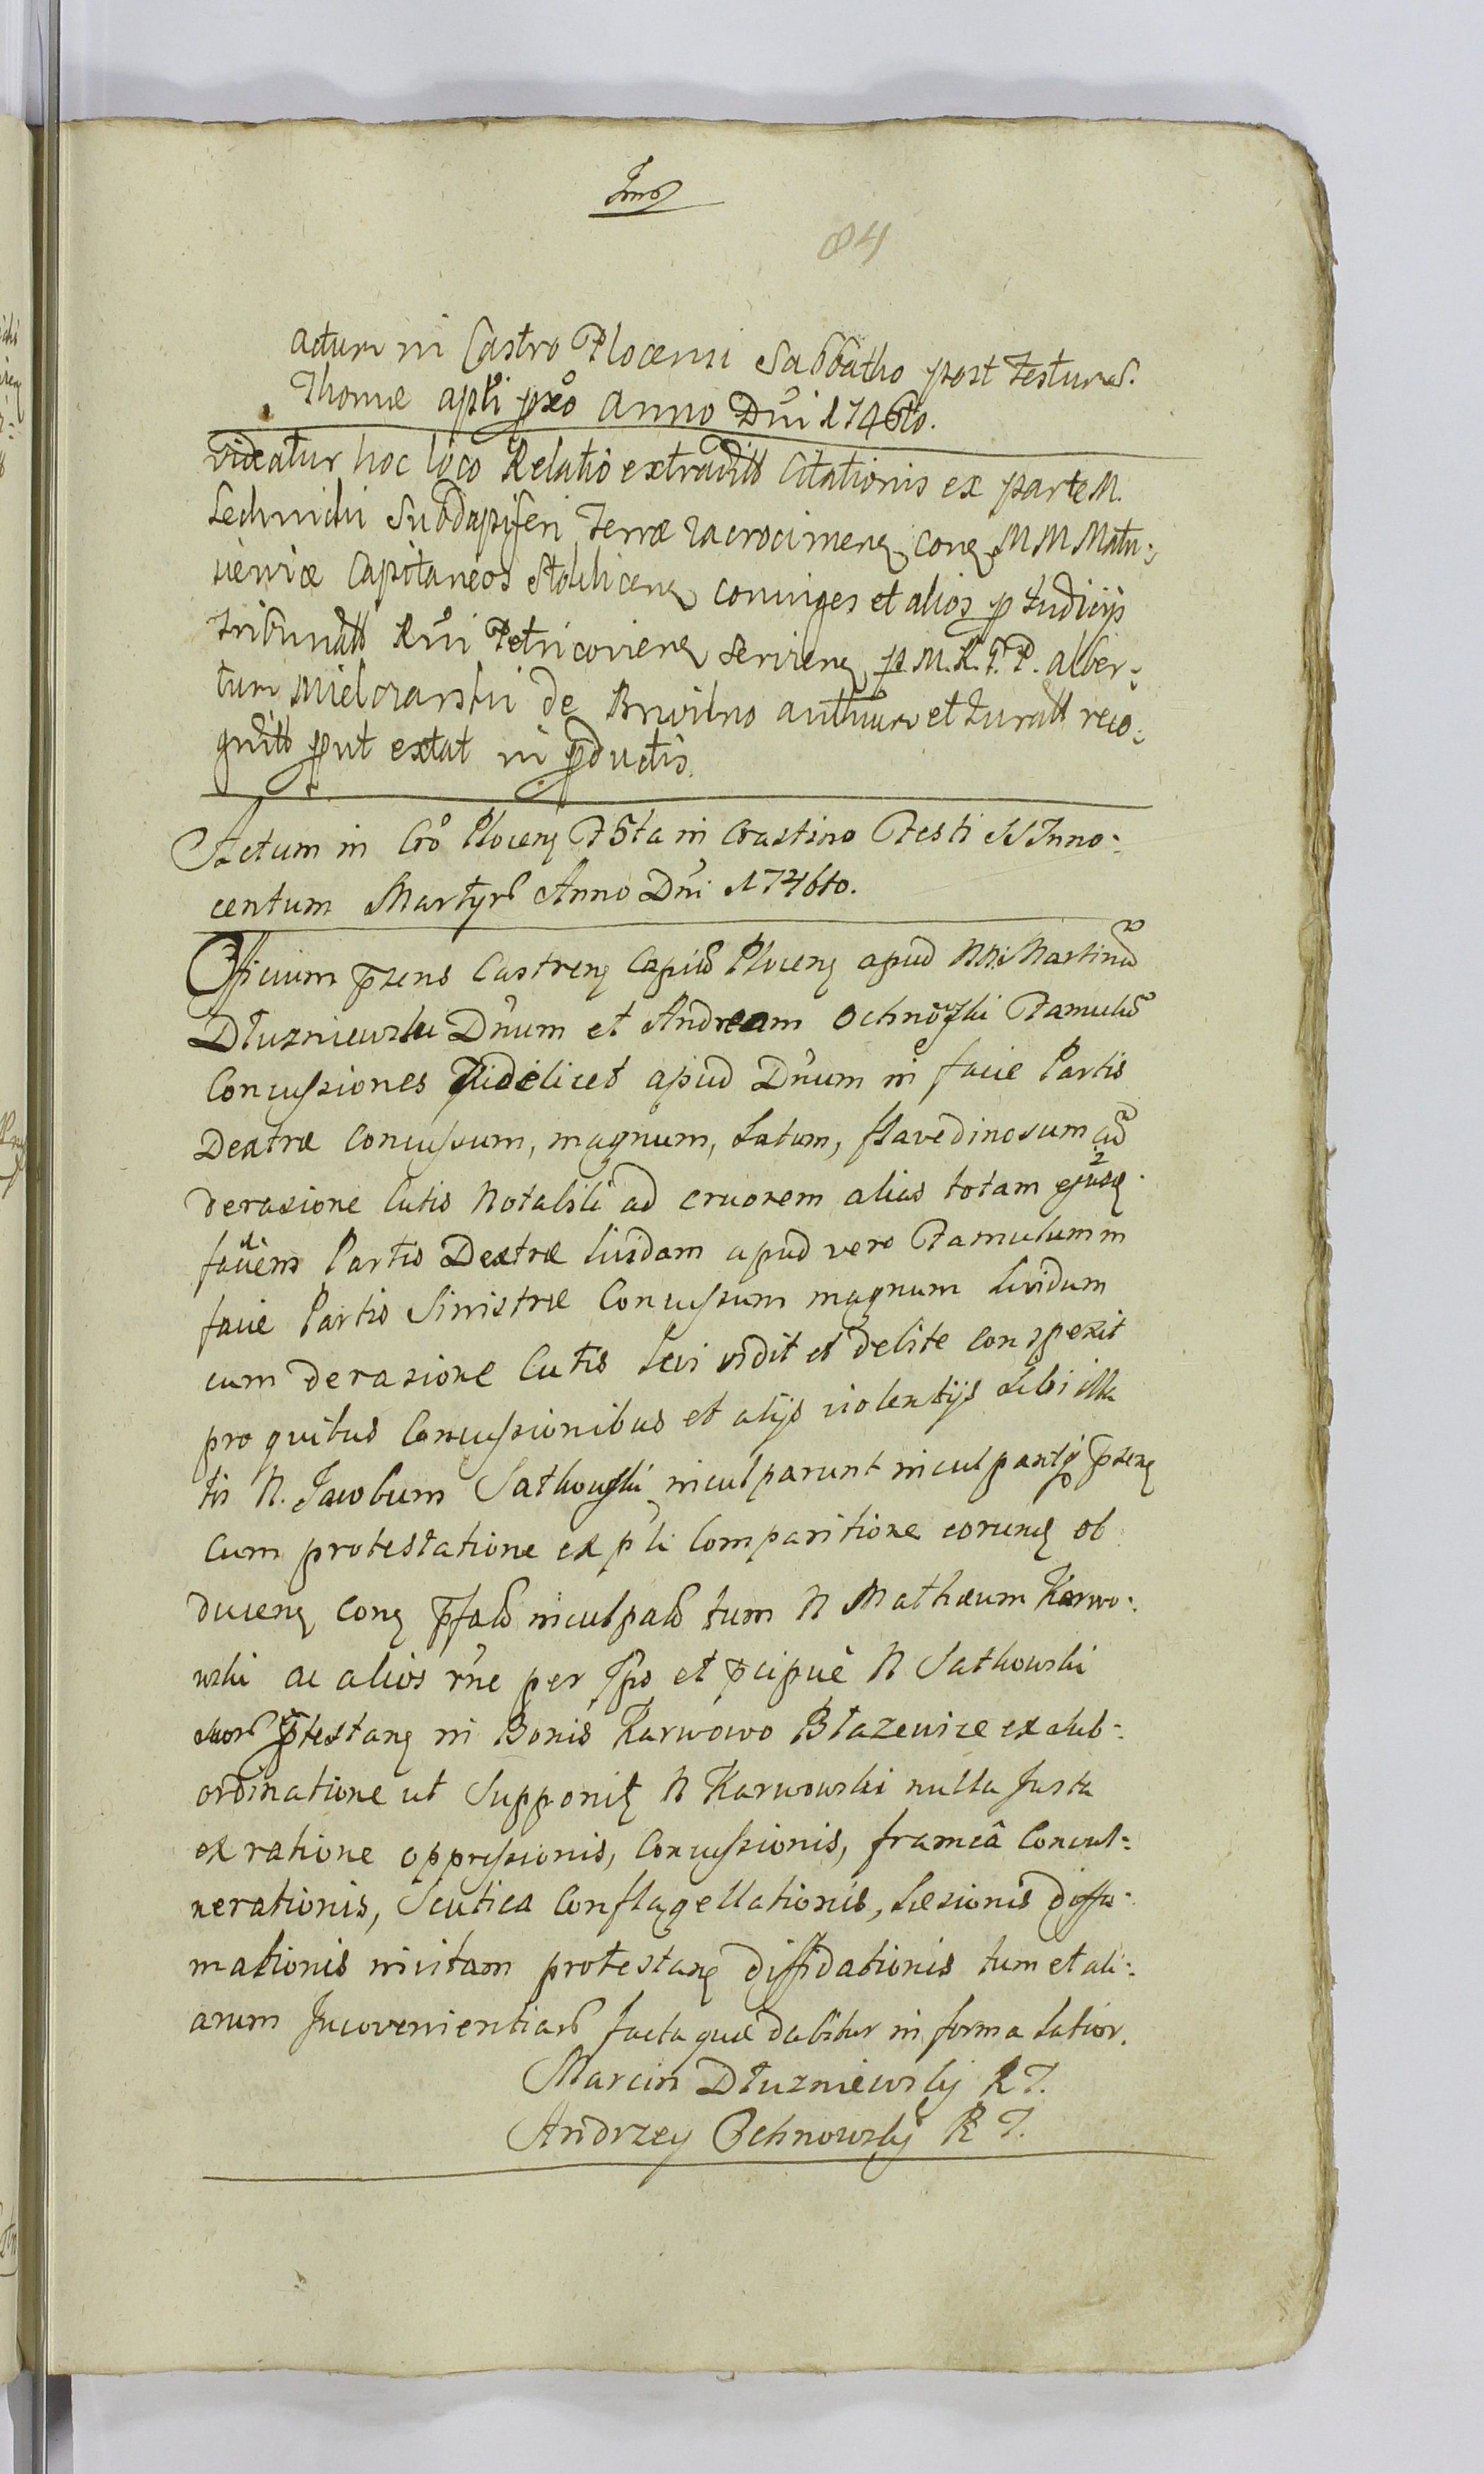 84
Actum in Castro Plocensi Sabbatho post Festum S.
Thomæ apli pxo Anno Dni 1746to.
Videatur hoc loco Relatio extraditt Citationis ex parte M.
Subdapiferi Terræ Zacrocimen con MM Matu-
siewiæ Capitaneos Stoklicen coniuges et alios p Judicijs
Tribunatt Rni Petricovien servien p M. R. T. P. Alber-
tum Mieloranski de Brwilno authum et Juratt reco-
gnitt put extat in pductis.
Actum in Cro Plocen F5ta in Crastino Festi SS Inno-
centum Martyr Anno Dni 1746to.
Officium pzens Castren Capit Plocen apud NN: Martinu
Dłuzniewski Dnum et Andream Ochnowski Famulu
Concussiones Videlicet apud Dnum in facie Partis
Dextræ Concussum, magnum, Latum, flavedinosum cu
derasione Cutis Notabili ad cruorem alias totam ejusd
faciem Partis Dextræ lividam apud vero Famulum in
facie Partis Sinistræ Concussum magnum lividum
cum derasione Cutis Levi vidit et debite conspexit
pro quibus Concussionibus et alijs violentijs Sibi illa
tis N. Jacobum Satkowski inculparunt inculpantq pzen
Cum protestatione ex pli Comparitione eorund ob
ducen con pfat inculpat tum N Mathæum Karwo-
wski ac alios rne per Ipso et pcipuè N Satkowski
suor ptestan in Bonis Karwowo Błazewice ex Sub-
ordinatione ut Supponit N Karwowski nulla Justa
ex ratione oppressionis, Concussionis, frameâ Concul-
nerationis, Scutica Conflagellationis, Læsionis diffa-
mationis invitam protestan diffidationis tum et ali-
arum Inconvenientiar facta quæ dabitur in forma Latior.
Marcin Dłuzniewsky R T.
Andrzey Ochnowsky R T.